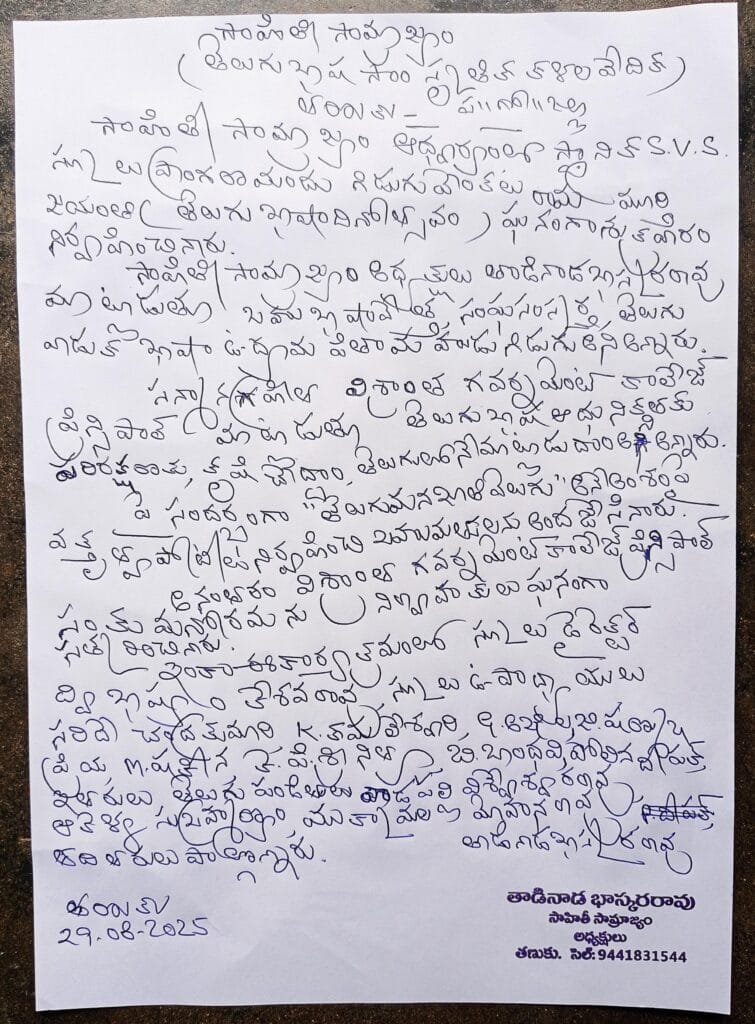 సాహితీ సామ్రాజ్యం
(తెలుగు భాష సాంస్కృతిక కళా వేదిక)
తణుకు - ప||గో||జిల్లా
సాహితీ సామ్రాజ్యం ఆధ్వర్యంలో స్థానిక S.V.S.
స్కూలు ప్రాంగణమందు గిడుగు వెంకట రామమూర్తి
జయంతి (తెలుగు భాషా దినోత్సవం) ఘనంగా శుక్రవారం
నిర్వహించినారు.
సాహితీ సామ్రాజ్యం అధ్యక్షులు తాడినాడ భాస్కరరావు
మాట్లాడుతూ బహుభాషావేత్త, సంఘసంస్కర్త తెలుగు
వాడుక భాషా ఉద్యమ పితామహుడు గిడుగు అని అన్నారు.
సన్మాన గ్రహీత విశ్రాంత గవర్నమెంట్ కాలేజ్
ప్రిన్సిపాల్ మాట్లాడుతూ తెలుగు భాష ఆధునికతకు
పరిరక్షణకు, కృషి చేద్దాం, తెలుగులోనే మాట్లాడుదాం అని అన్నారు.
ఈ సందర్భంగా "తెలుగు మన భాష వెలుగు" అనే అంశంపై
వక్తృత్వ పోటీలు నిర్వహించి బహుమతులను అందజేసినారు.
అనంతరం విశ్రాంత గవర్నమెంట్ కాలేజ్ ప్రిన్సిపాల్
సంకు మనోరమను నిర్వాహకులు ఘనంగా
సత్కరించినారు.
ఇంకా ఈ కార్యక్రమంలో స్కూలు డైరెక్టర్
ద్విభాష్యం కేశవరావు స్కూలు ఉపాధ్యాయులు
చంద్రకుమారి K.
ప్రియ
తెలుగు పండితులు విశ్వేశ్వరరావు,
సుబ్రహ్మణ్యం మోహనరావు
తదితరులు పాల్గొన్నారు. తాడినాడ భాస్కరరావు
తణుకు
29-08-2025
తాడినాడ భాస్కరరావు
సాహితీ సామ్రాజ్యం
అధ్యక్షులు
తణుకు. సెల్: 9441831544